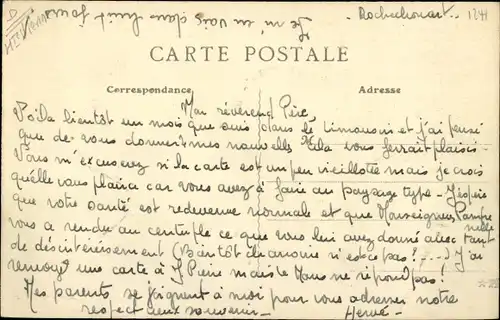 Je m'en vais dans huit jours
Rochechouart.. 1241
Hte Vienne
CARTE POSTALE
Correspondance
Adresse
Mon révérend Père,
Voilà bientôt un mois que suis dans le Limousin et j'ai pensé
que de vous donner mes nouvelles cela vous ferait plaisir.
Vous m'excuserez si la carte est un peu vieillotte mais je crois
qu'elle vous plaira car vous avez à faire au paysage type. J'espère
que votre santé est redevenue normale et que Monseigneur
vous a rendu au centuple ce que vous lui avez donné avec tant
de désintéressement (Bientôt chanoine n'est-ce pas! ...) J'ai
renvoyé une carte à J. Pierre mais le Mans ne répond pas!
Mes parents se joignent à moi pour vous adresser notre
respectueux souvenir - Hervé -